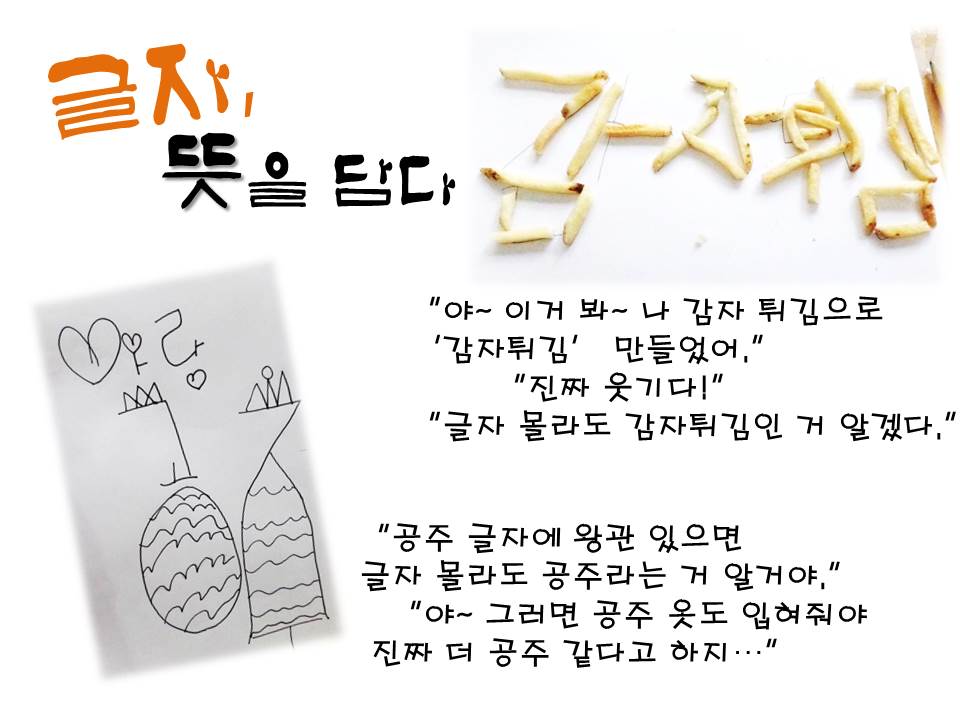 글자,
뜻을 담다
감자튀김
"야~ 이거 봐~ 나 감자 튀김으로
'감자튀김' 만들었어."
"진짜 웃기다!"
"글자 몰라도 감자튀김인 거 알겠다."
공주
"공주 글자에 왕관 있으면
글자 몰라도 공주라는 거 알거야."
"야~ 그러면 공주 옷도 입혀줘야
진짜 더 공주 같다고 하지…"